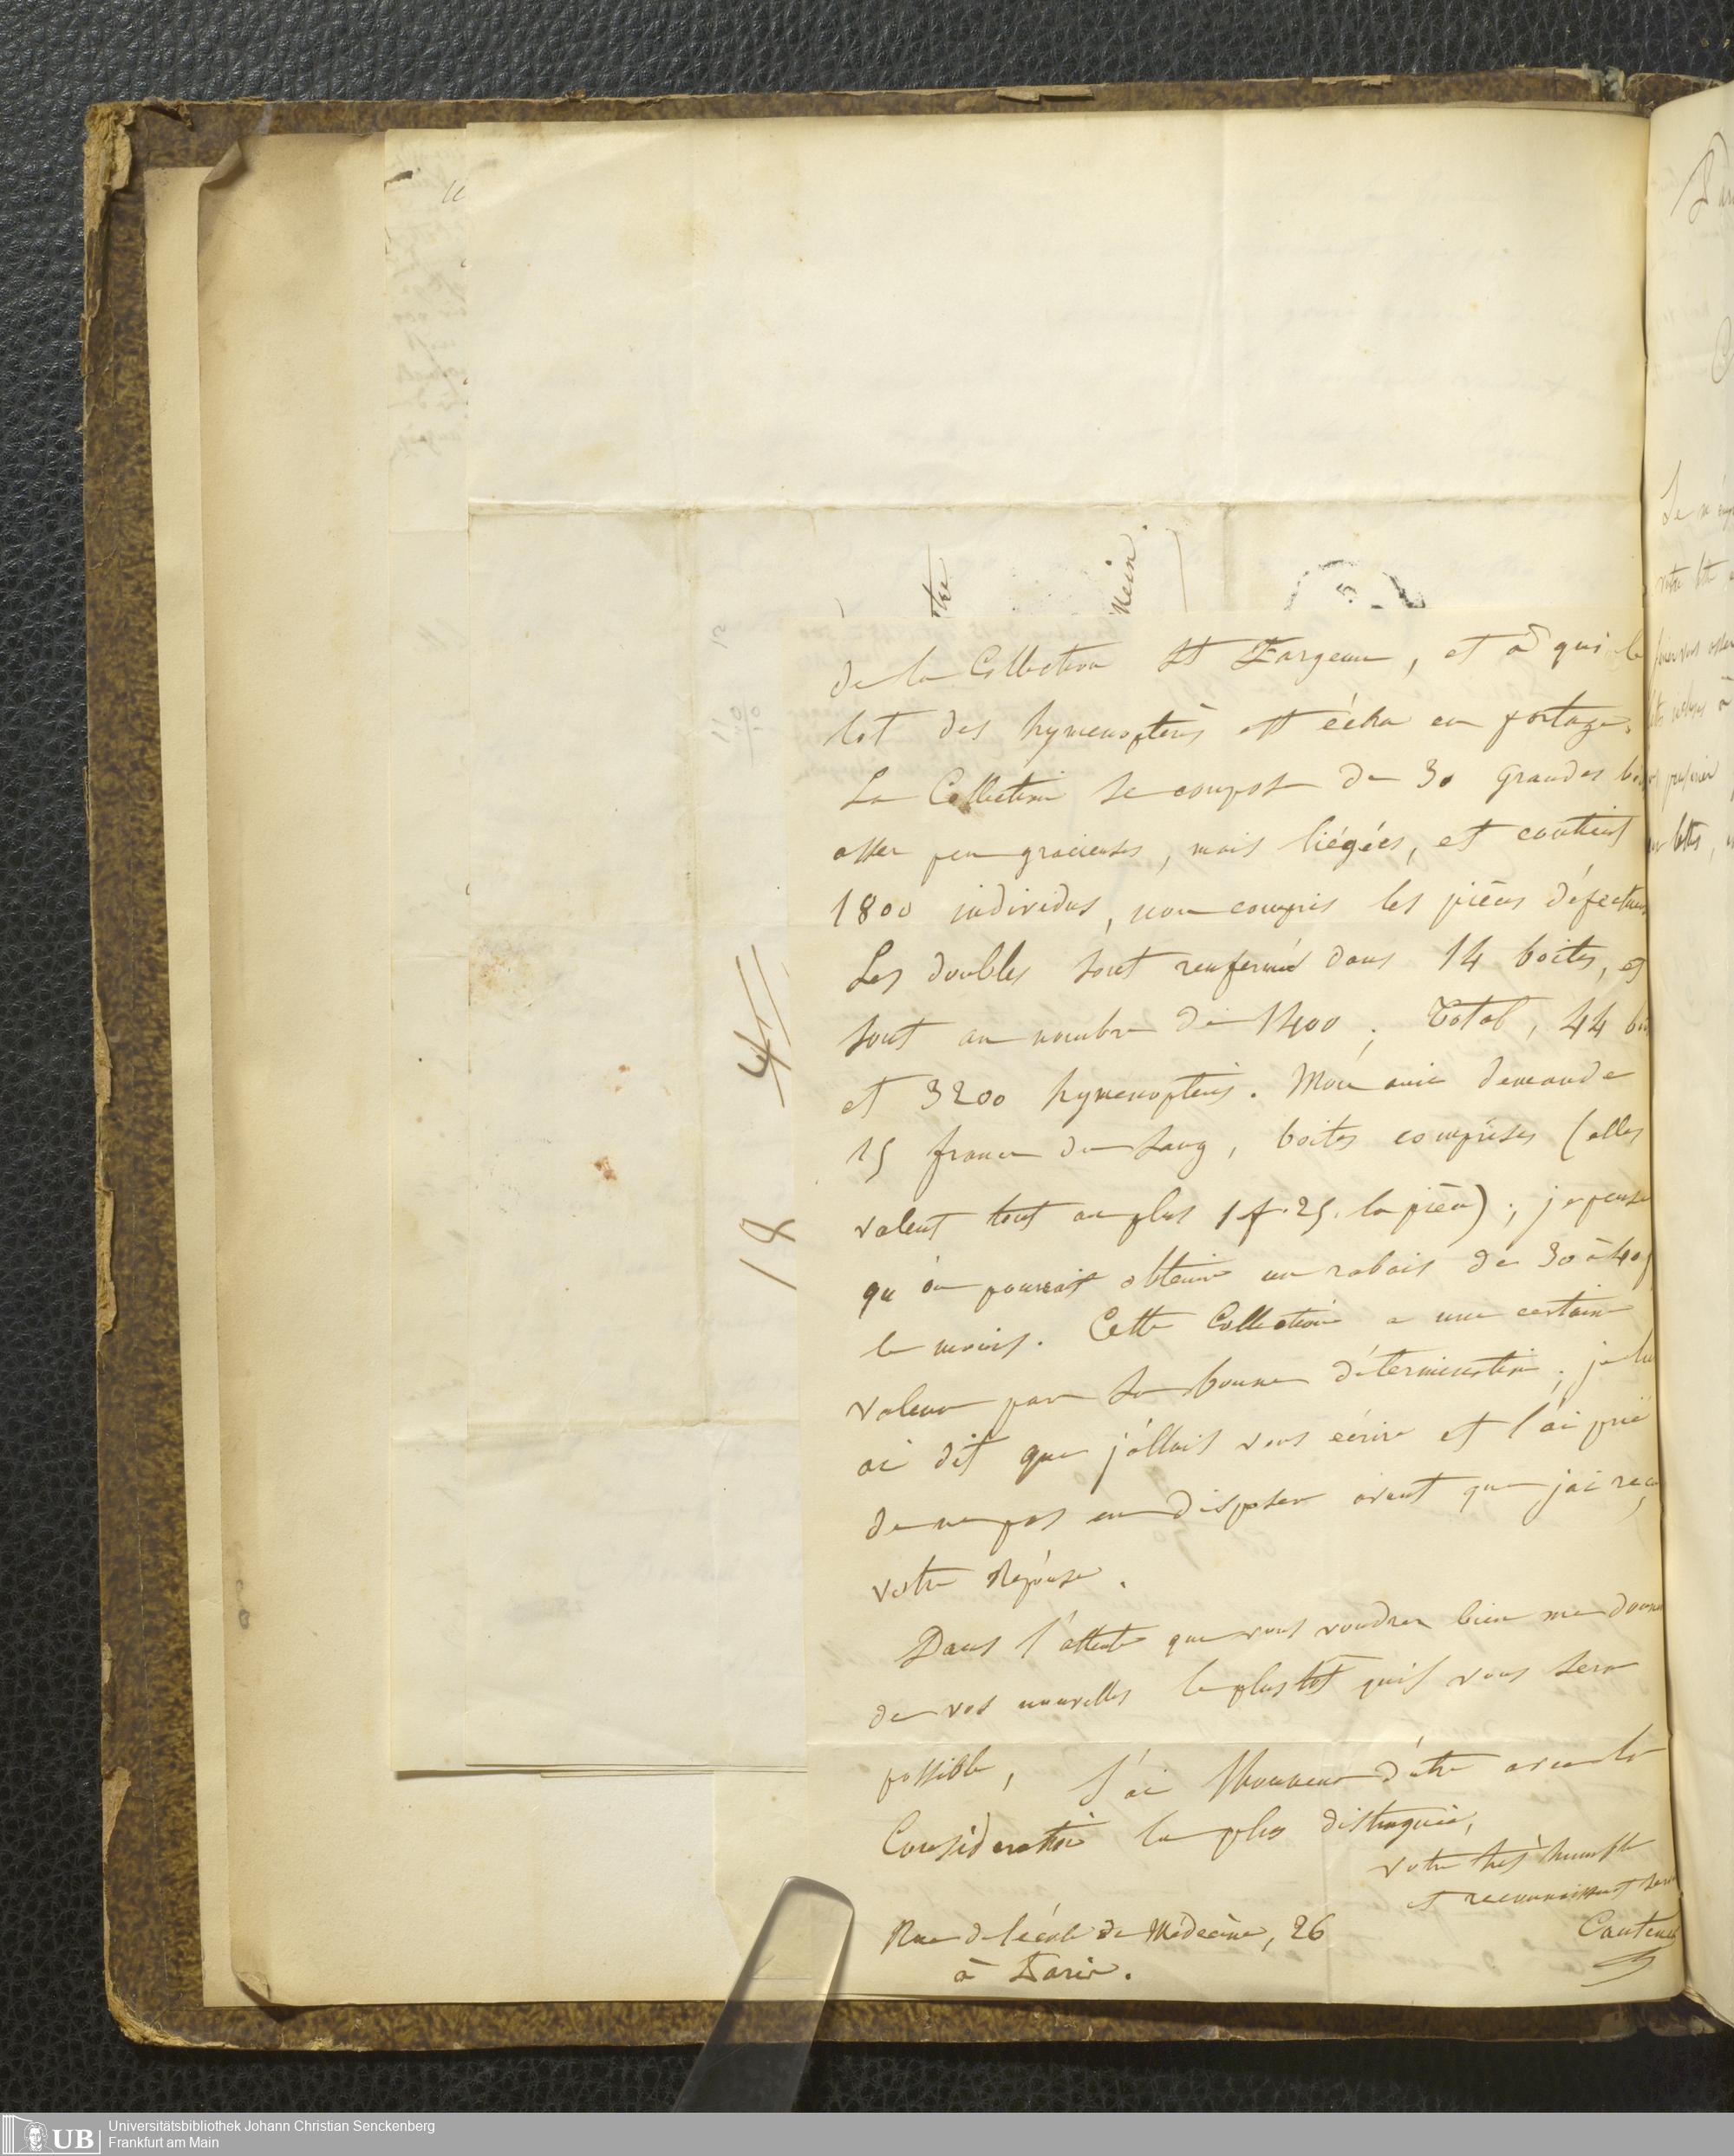 de la Collection St Fargeau, et à qui le
lot des hymenoptères est échu en partage.
La Collection se compose de 30 grandes
assez peu gracieuses, mais liégées, et contient
1800 individus, non compris les pièces défectueu
Les doubles sont renfermés dans 14 boites, et
sont au nombre de 1400; Total, 44
et 3200 hymenoptères. Mon ami demande
15 francs du Cent, boites comprises (elles
valent tout au plus 1 f. 25. la pièce); je pense
qu'on pourrait obtenir un rabais de 30 à 40 f
le moins. Cette Collection a une certaine
valeur par sa bonne détermination; je lui
ai dit que j'allais vous écrire et l'ai prié
de ne pas en disposer avant que j'ai reçu
votre Réponse.
Dans l'attente que vous voudrez bien me donner
de vos nouvelles le plus tôt qu'il vous sera
possible, J'ai l'honneur d'être avec la
Considération la plus distinguée,
votre très humble
et reconnaissant serv
Rue de l'école de Médecine, 26
à Paris.
4
18
Universitätsbibliothek Johann Christian Senckenberg
Frankfurt am Main
UB